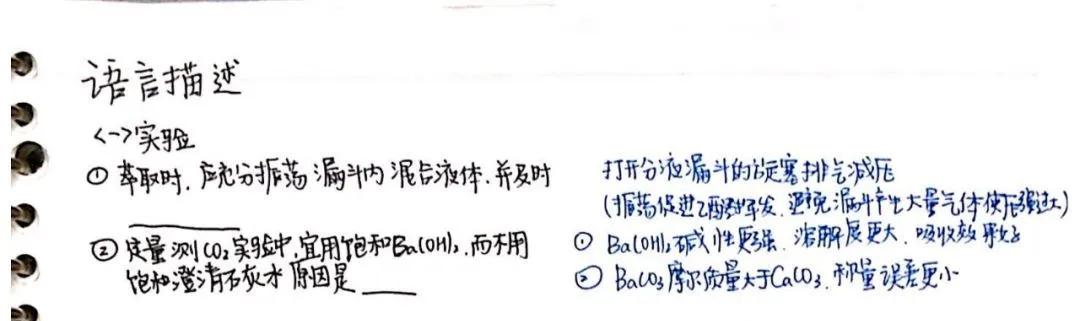 语言描述
<一>实验
① 萃取时，应充分振荡漏斗内混合液体，并及时
打开分液漏斗的旋塞排气减压
(振荡促进乙醚挥发，避免漏斗产生大量气体使压强过大)
② 定量测CO₂实验中，宜用饱和Ba(OH)₂，而不用
饱和澄清石灰水原因是
① Ba(OH)₂碱性更强，溶解度更大，吸收效果好
② BaCO₃摩尔质量大于CaCO₃，称量误差更小